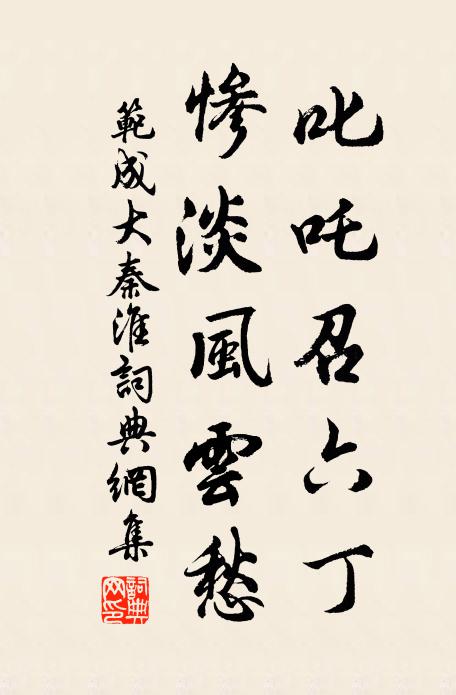 叱吒召六丁
慘淡風雲愁
範成大秦淮詞典網集
詞典網印